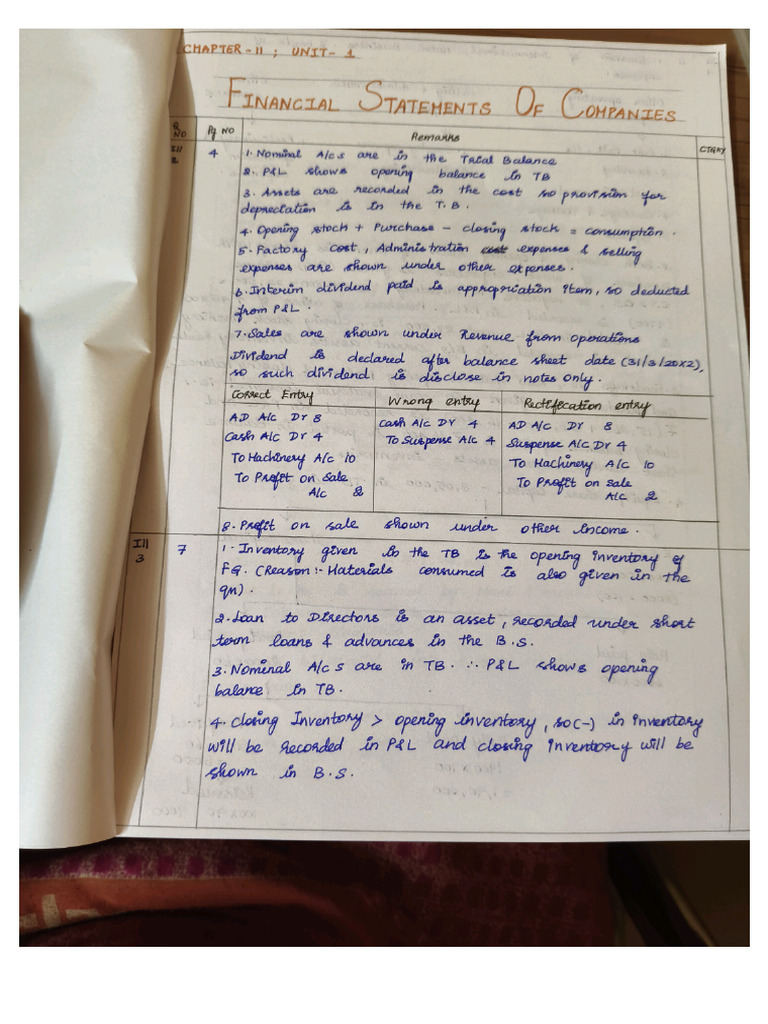 CHAPTER - 11 ; UNIT - 1
FINANCIAL STATEMENTS OF COMPANIES
Q NO
Pg NO
Remarks
CTGRY
Ill 2
4
1. Nominal A/cs are in the Trial Balance
2. P&L shows opening balance in TB
3. Assets are recorded in the cost so provision for
depreciation is in the T.B.
4. Opening stock + Purchase - closing stock = consumption.
5. Factory cost, Administration cost expenses & selling
expenses are shown under other expenses.
6. Interim dividend paid is appropriation item, so deducted
from P&L.
7. Sales are shown under Revenue from operations
Dividend is declared after balance sheet date (31/3/20X2),
so such dividend is disclose in notes only.
Correct Entry
AD A/c Dr 8
Cash A/c Dr 4
To Machinery A/c 10
To Profit on Sale
A/c 2
Wrong entry
Cash A/c Dr 4
To Suspense A/c 4
Rectification entry
AD A/c Dr 8
Suspense A/c Dr 4
To Machinery A/c 10
To Profit on sale
A/c 2
8. Profit on sale shown under other income.
Ill 3
7
1. Inventory given in the TB is the opening inventory of
FG. (Reason:- Materials consumed is also given in the
qn).
2. Loan to Directors is an asset, recorded under short
term loans & advances in the B.S.
3. Nominal A/cs are in TB. ∴ P&L shows opening
balance in TB.
4. Closing Inventory > opening inventory, so (-) in inventory
will be recorded in P&L and closing inventory will be
shown in B.S.